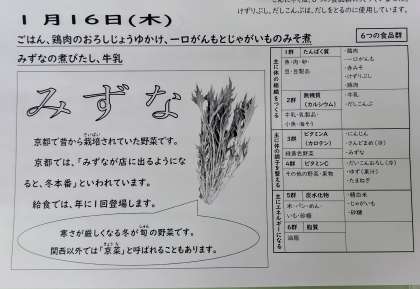 けずりぶし、だしこんぶは、だしをとるのに使用しています。
1月16日(木)
ごはん、鶏肉のおろしじょうゆかけ、一口がんもとじゃがいものみそ煮
みずなの煮びたし、牛乳
みずな
京都で昔から栽培されていた野菜です。
京都では、「みずなが店に出るようにな
ると、冬本番」といわれています。
給食では、年に1回登場します。
寒さが厳しくなる冬が旬の野菜です。
関西以外では「京菜」と呼ばれることもあります。
6つの食品群
主に体の組織をつくる
1群 たんぱく質
魚・肉・卵・
豆・豆製品
・鶏肉
・一口がんも
・赤みそ
・けずりぶし
・鶏肉
2群 無機質
(カルシウム)
牛乳・乳製品・
小魚・海そう
・牛乳
・だしこんぶ
主に体の調子を整える
3群 ビタミンA
(カロテン)
緑黄色野菜
・にんじん
・さんどまめ(冷)
・みずな
4群 ビタミンC
その他の野菜・果物
・だいこんおろし(冷)
・ゆず(果汁)
・たまねぎ
主にエネルギーになる
5群 炭水化物
米・パン・めん・
いも・砂糖
・精白米
・じゃがいも
・砂糖
6群 脂質
油脂